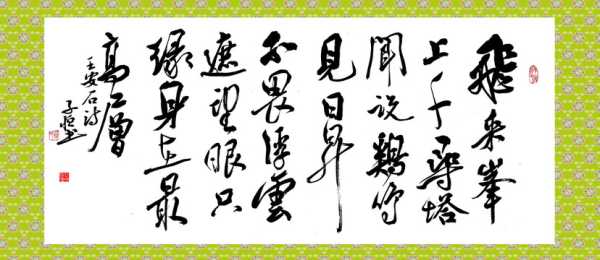 飛来峯
上千尋塔
聞説鷄鳴
見日昇
不畏浮雲
遮望眼只
緣身在最
高層
王安石诗